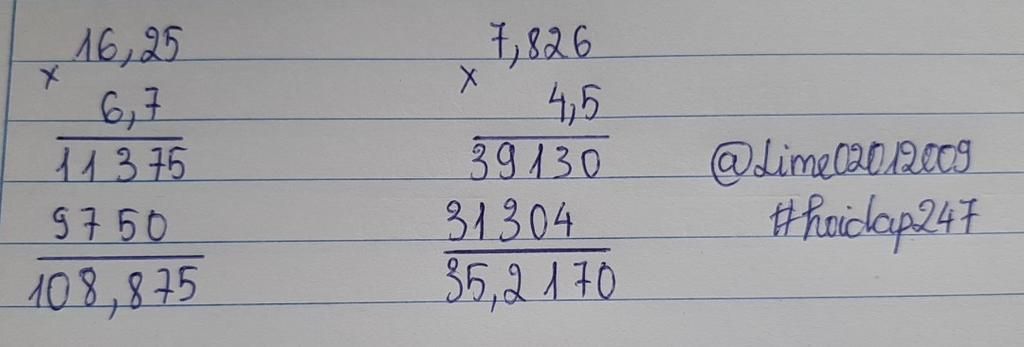 16,25
×
6,7
11375
9750
108,875
7,826
×
4,5
39130
31304
35,2170
@Lime02012009
#hoidap247